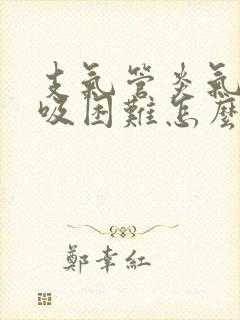 支氣管炎氣
吸困難怎麼
鄭幸紅